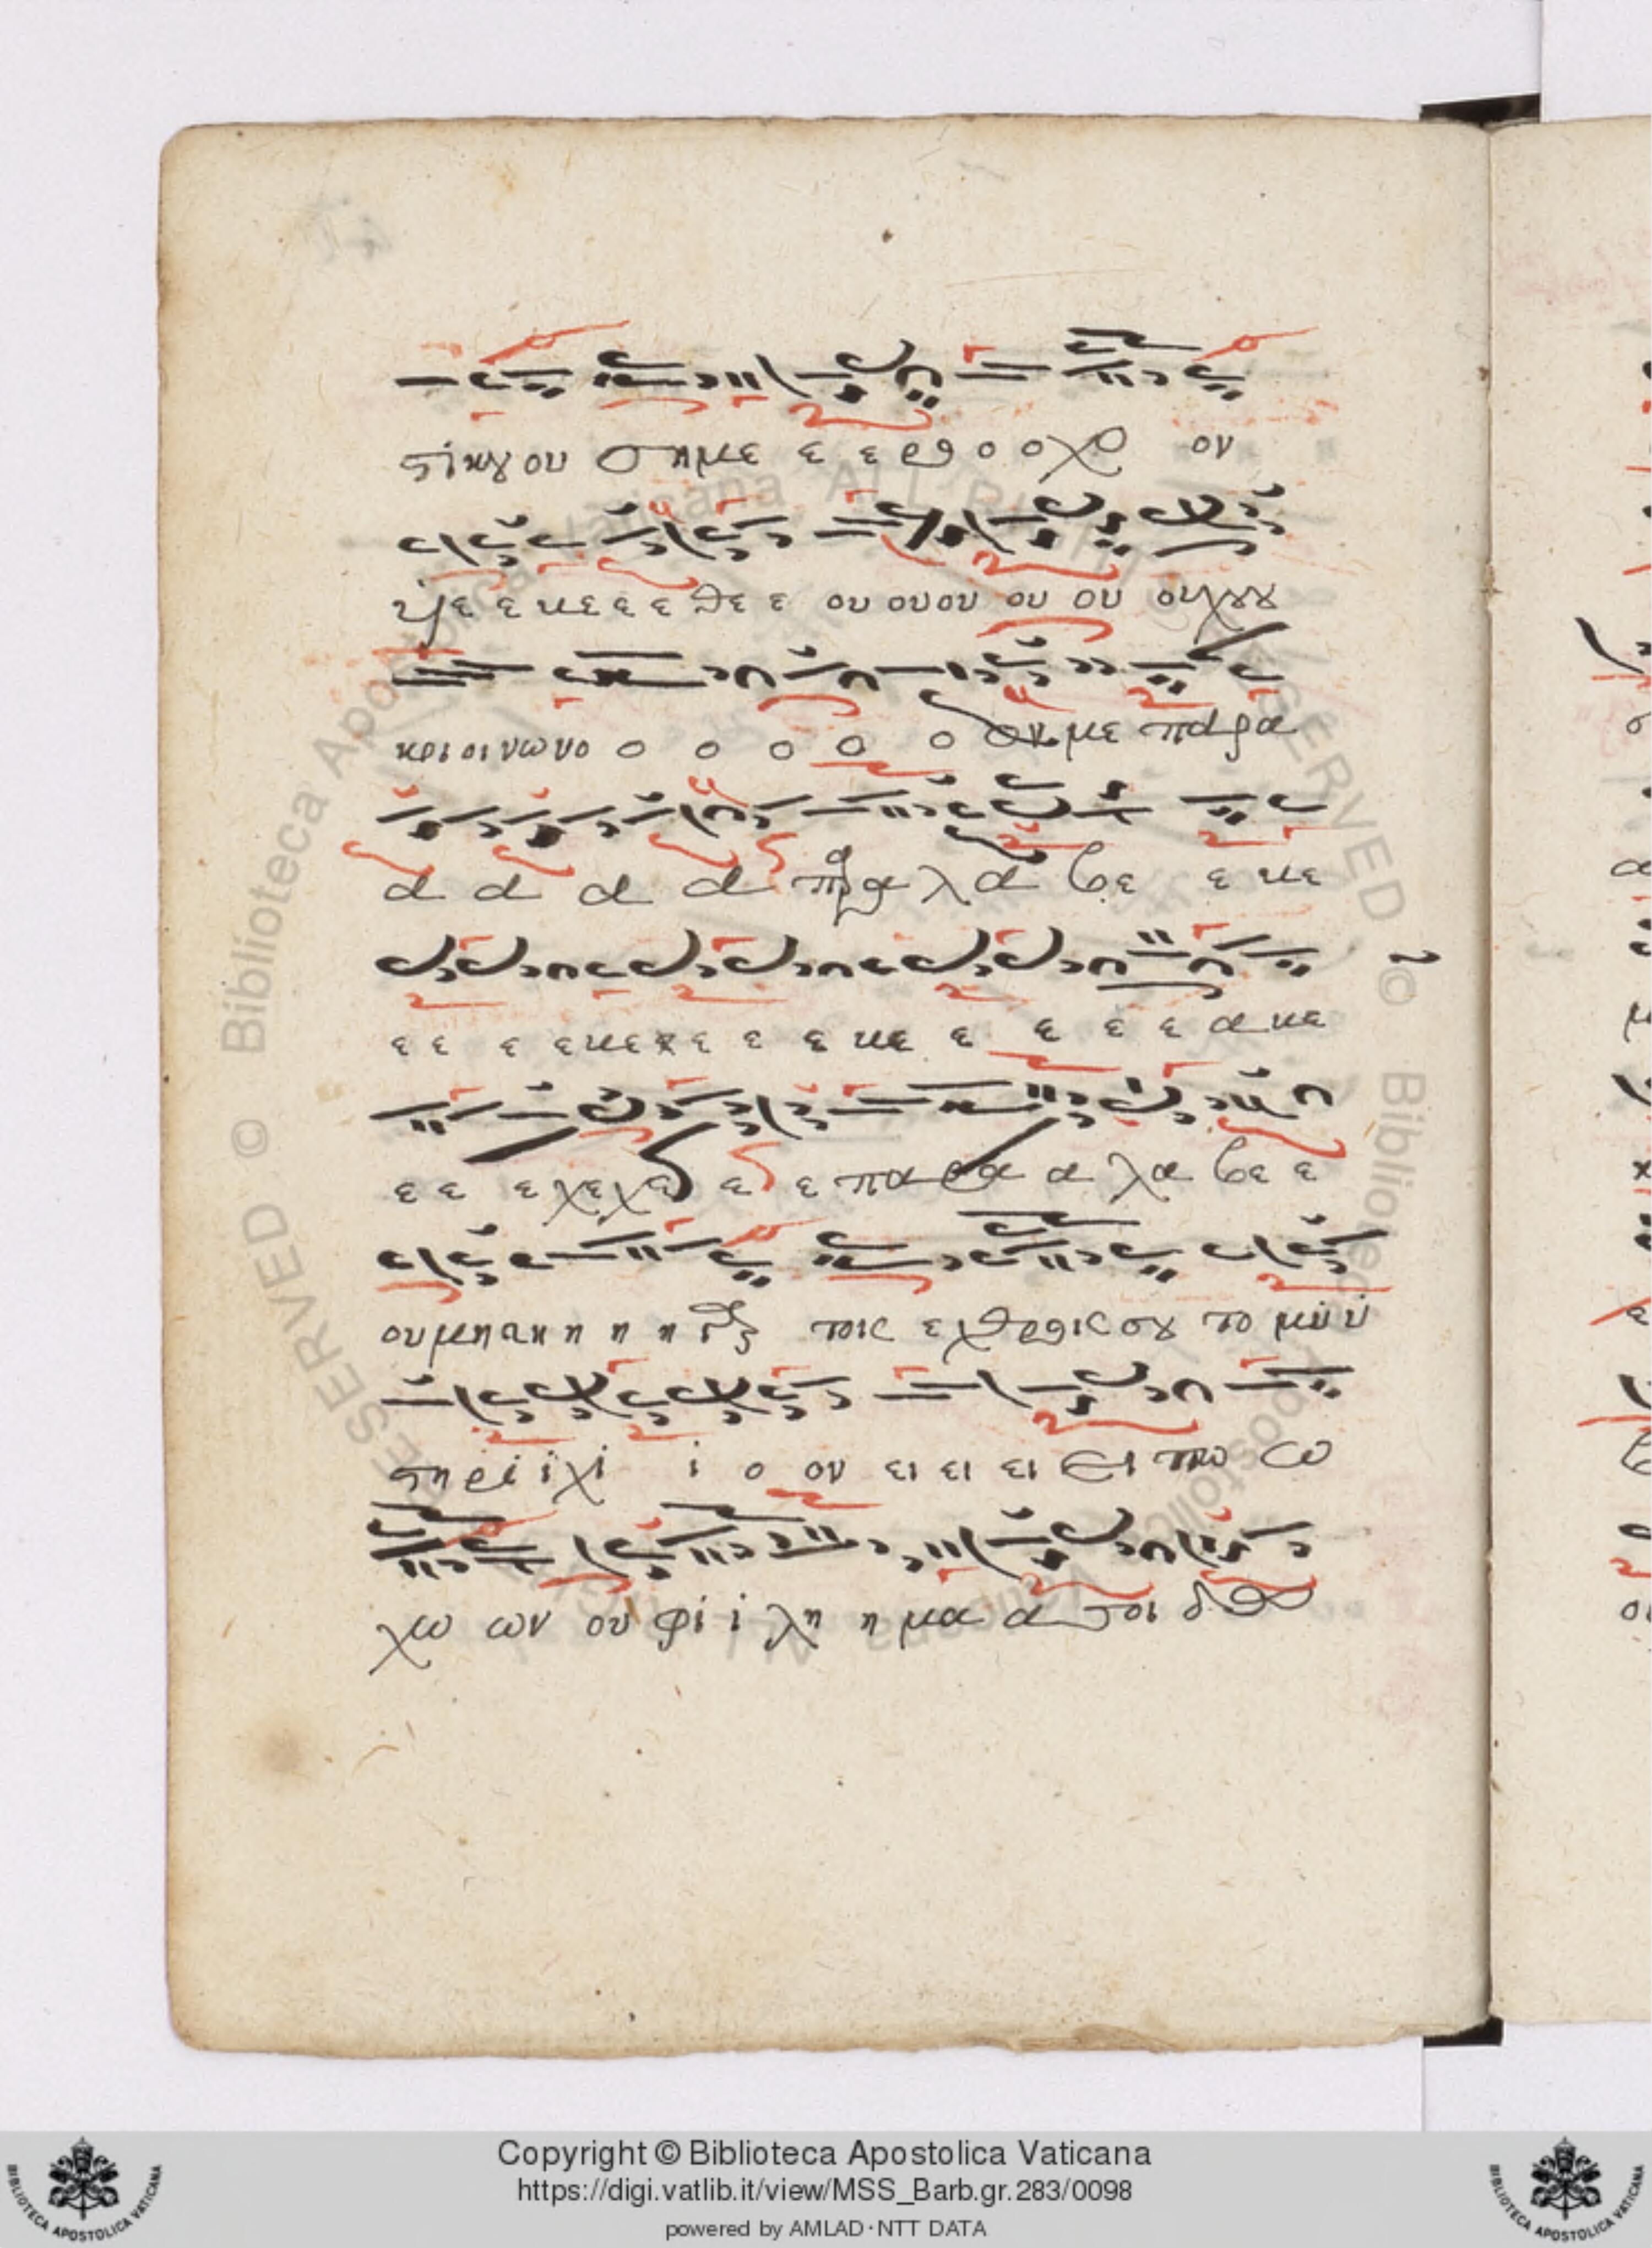 στικου ου σημε ε ε ρο ο ο χρ ον
ψε ε κε ε ε ε θε ε ου ου ου ου ου ου χου ου
κρι οι νω νο ο ο ο ο ο ον με παρα
α α α α παρα λα βε ε κε
ε ε ε ε κε χε ε ε ε κε ε ε ε ε α κε
ε ε ε χε χε ε ε παρα α λα βε ε
ου μη τι η η η γαρ τοις ε χθροις σου το μυ υ
στηρι ι χι ι ο ον ει ει ει Ει πω ω
χω ων ου φι ι λη η μα α σοι δ
Copyright © Biblioteca Apostolica Vaticana
https://digi.vatlib.it/view/MSS_Barb.gr.283/0098
powered by AMLAD·NTT DATA